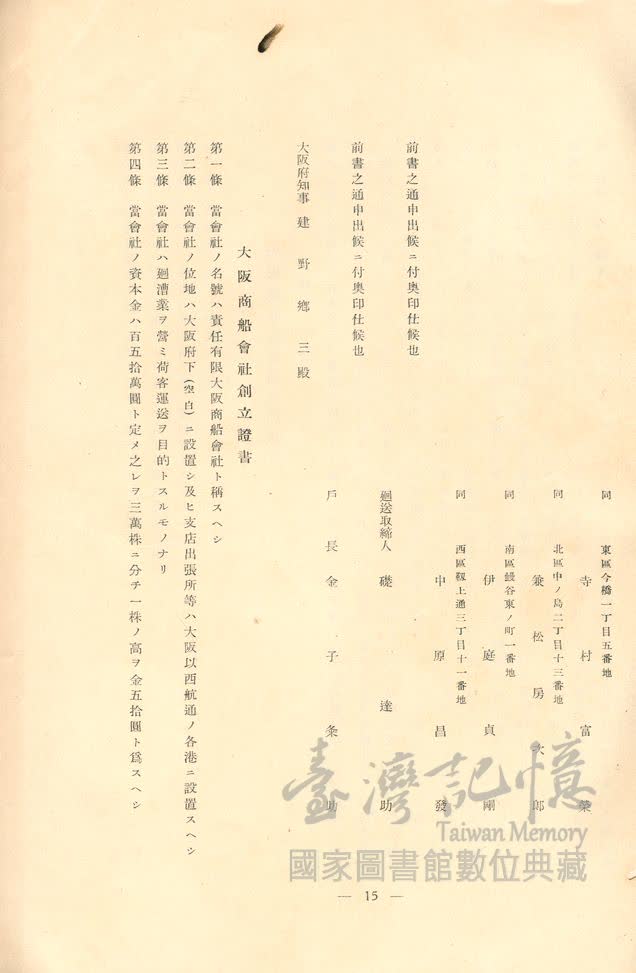 同 東區今橋一丁目五番地
寺村富榮
同 北區中ノ島二丁目十三番地
兼松房次郎
同 南區鰻谷東ノ町一番地
伊庭貞剛
同 西區靱上通三丁目十一番地
中原昌發
前書之通申出候ニ付奥印仕候也
廻送取締人 礎達助
前書之通申出候ニ付奥印仕候也
戶長金子条助
大阪府知事 建野鄉三殿
大阪商船會社創立證書
第一條 當會社ノ名號ハ責任有限大阪商船會社ト稱スヘシ
第二條 當會社ノ位地ハ大阪府下(空白)ニ設置シ及ヒ支店出張所等ハ大阪以西航通ノ各港ニ設置スヘシ
第三條 當會社ハ廻漕業ヲ營ミ荷客運送ヲ目的トスルモノナリ
第四條 當會社ノ資本金ハ百五拾萬圓ト定メ之レヲ三萬株ニ分チ一株ノ高ヲ金五拾圓ト爲スヘシ
臺灣記憶
Taiwan Memory
國家圖書館數位典藏
— 15 —